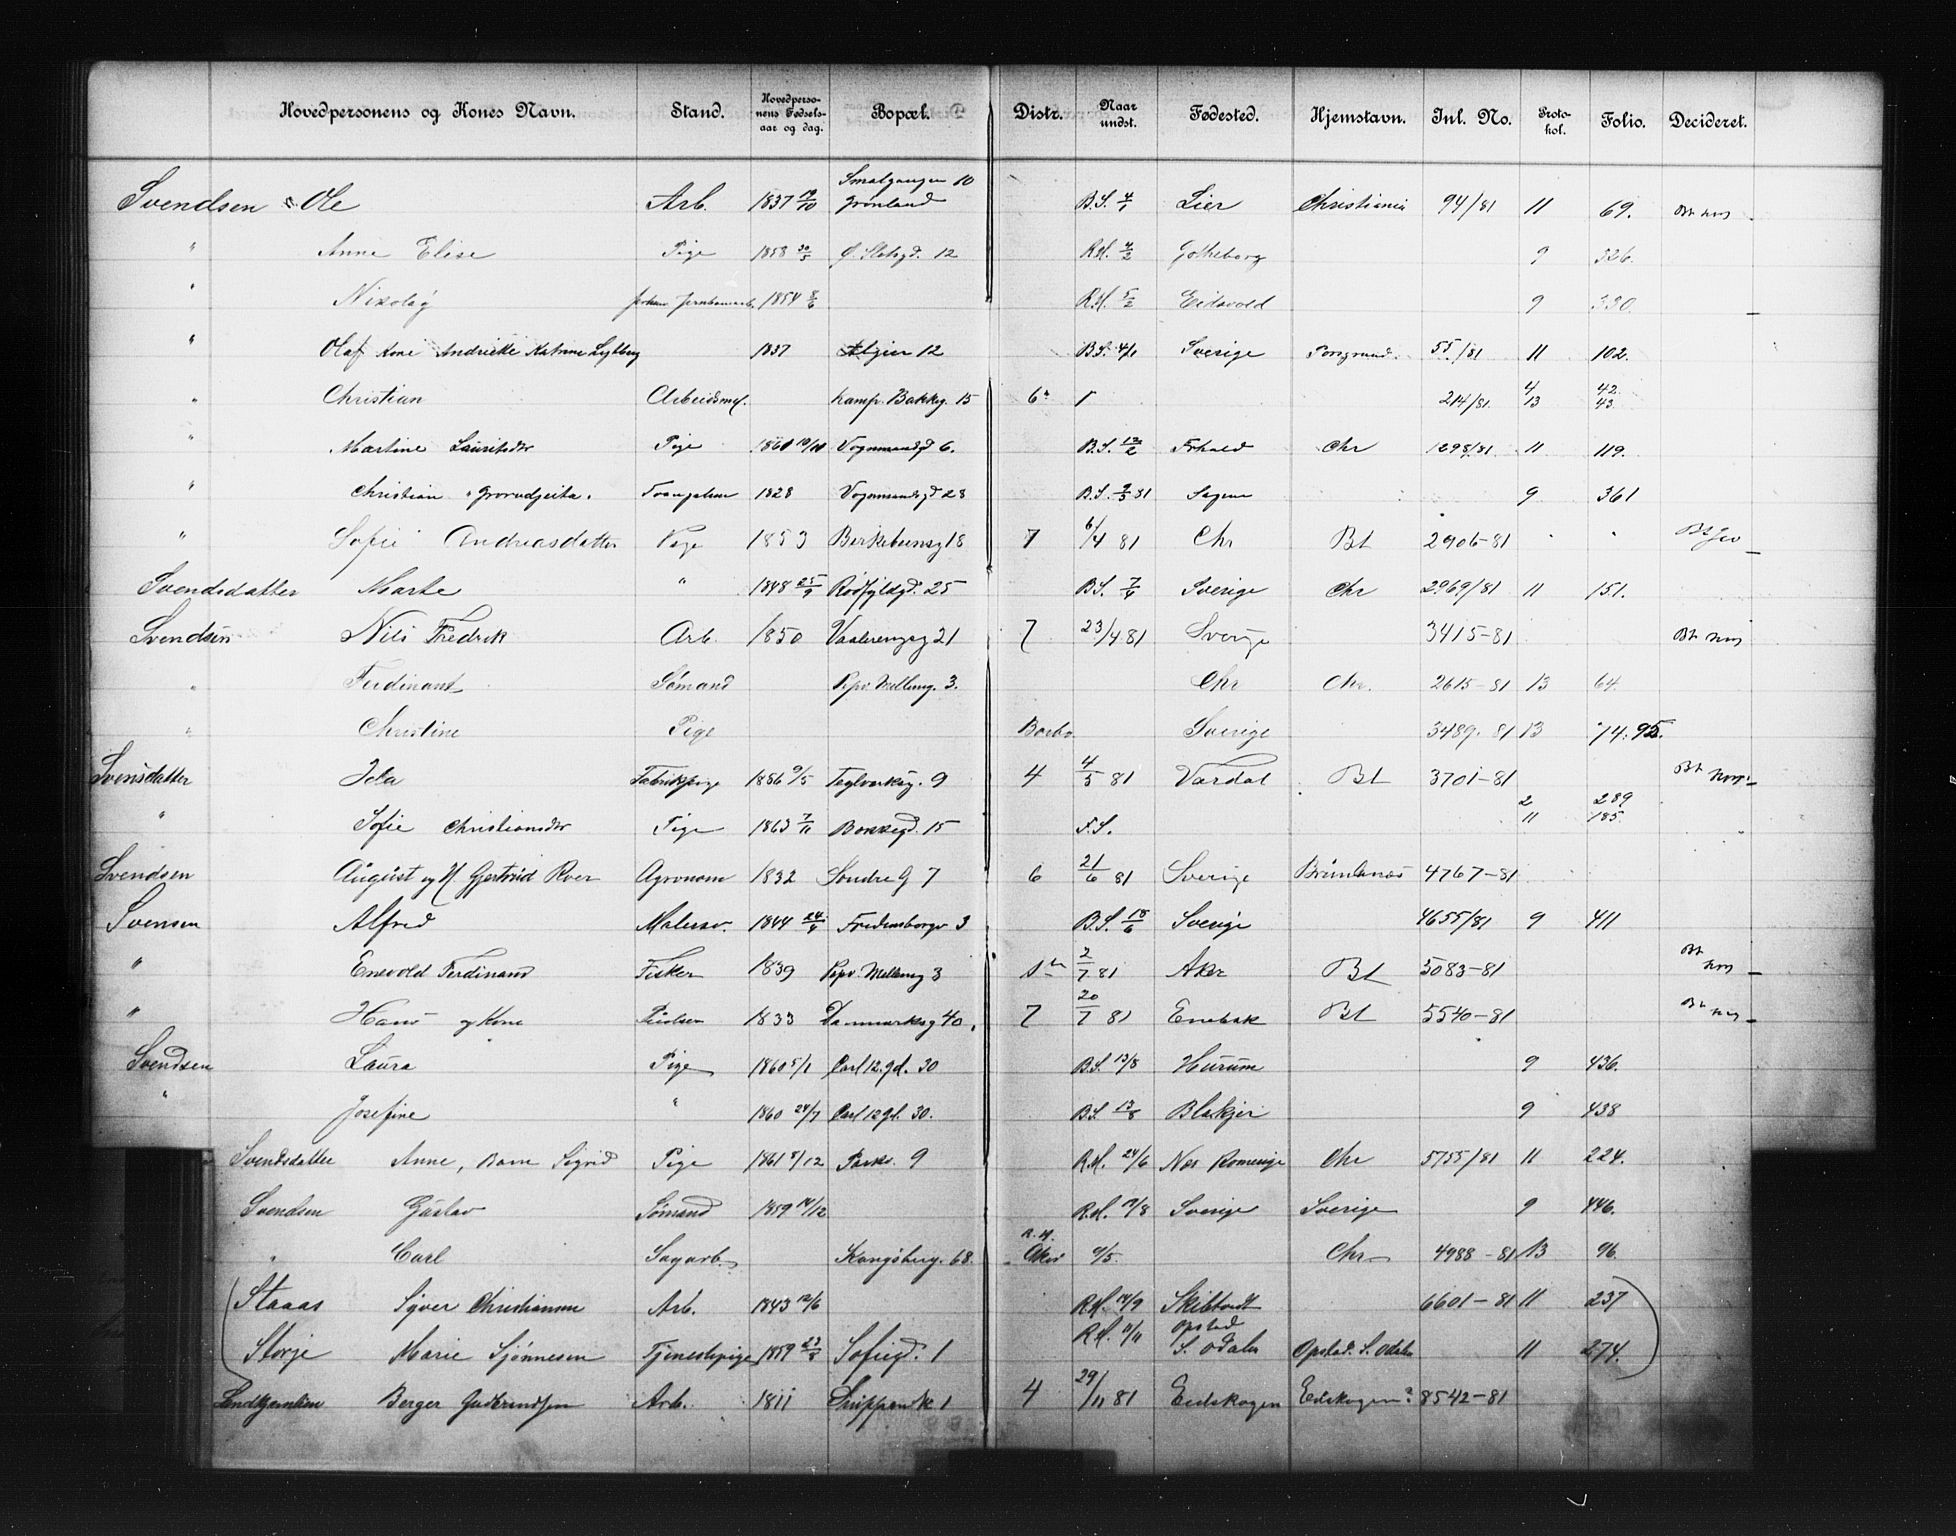 Hovedpersonens og Kones Navn. Stand. Hovedpersonens Fødselsaar og dag. Bopæl. Distr. Naar undst. Fødested. Hjemstavn. Inl. No. Protokol. Folio. Decideret.
Svendsen Ole Arb. 1837 Smalgangen 10 Grønland B.S. 4/1 Lier Christiania 94/81 11 69. Bt
" Anne Elise Pige 1858 30/5 12 R.H. 4/2 Gotheborg 9 326.
" Nikolaj 1854 8/6 R.H. 5/2 Eidsvold 9 330.
" Olaf Kone Andrikke Katrine 1837 Algier 12 B.S. 4/1 Sverige Porsgrund. 55/81 11 102.
" Christian Arbeidsm. Kamp. Bakkg. 15 6 214/81. 4 13 42. 43.
" Martine Lauritsdtr Pige Vognmandsg 6. B.S. 12/2 Chr 1298/81 11 119.
" Christian 1828 Vognmandsgd 28 B.S. 81 Sogne 9 361
" Sofie Andreasdatter Pige 1853 Birkebeinsg 18 7 6/4 81 Chr Bt 2906-81 Bt
Svendsdatter Marte " 1848 25/9 Rødfyldgd. 25 B.S. Sverige Chr 2969/81 11 151.
Svendsen Nils Fredrik Arb. 1850 Vaalerengsg 21 7 23/4 81 Sverige 3415-81 Bt
" Ferdinant Sømand Pipv. Mellemg. 3. Chr Chr. 2615-81 13 64.
" Christine Pige Sverige 3489-81 13 74. 95.
Svensdatter Ida Fabrikpige 1856 9/5 Teglverksg. 9 4 4/5 81 Vardal Bt 3701-81 Bt
" Sofie Christiansdtr Pige 1863 7/11 Bakkegd. 15 F.S. 2 11 289 185.
Svendsen August og H Gjertrud Agronom 1832 Søndre G 7 6 21/6 81 Sverige 4767-81
Svensen Alfred Malersv. 1844 24/9 Fredensborgv 3 B.S. 18/6 Sverige 4655/81 9 411
" Enevold Ferdinand Fisker 1839 Pipv. Mellemg 3 2/7 81 Aker Bt 5083-81 Bt
" Hans og Kone 1833 Danmarksg 40. 7 20/7 81 Enebak Bt 5540-81 Bt
Svendsen Laura Pige 1860 5/1 Carl 12. gd. 30 B.S. 13/8 Hurum 9 436.
" Josefine " 1860 24/7 Carl 12 gd. 30. B.S. 13/8 Blakjer 9 438
Svendsdatter Anne, Barn Sigrid Pige 1861 8/12 Parkv. 9 R.H. 24/6 Nes Romerige Chr 5755/81 11 224.
Svendsen Gustav Sømand 1859 14/12 R.H. Sverige Sverige 9 446.
" Carl Sagarb. Kongsberg. 68. R.H. Aker 9/5. Chr 4988-81 13 96.
Staaas Syver Christiansen Arb. 1843 12/6 R.H. 14/9 6601-81 11 237
Storje Marie Sjønnesen Tjenestepige 1859 Sofiegd. 1 R.H. 11/11 Opstad S. Odalen Opstad. S. Odalen 11 274.
Berger Gudbrandsen Arb. 1811 1 4 29/11 81 Eidskogen Eidskogen? 8542-81